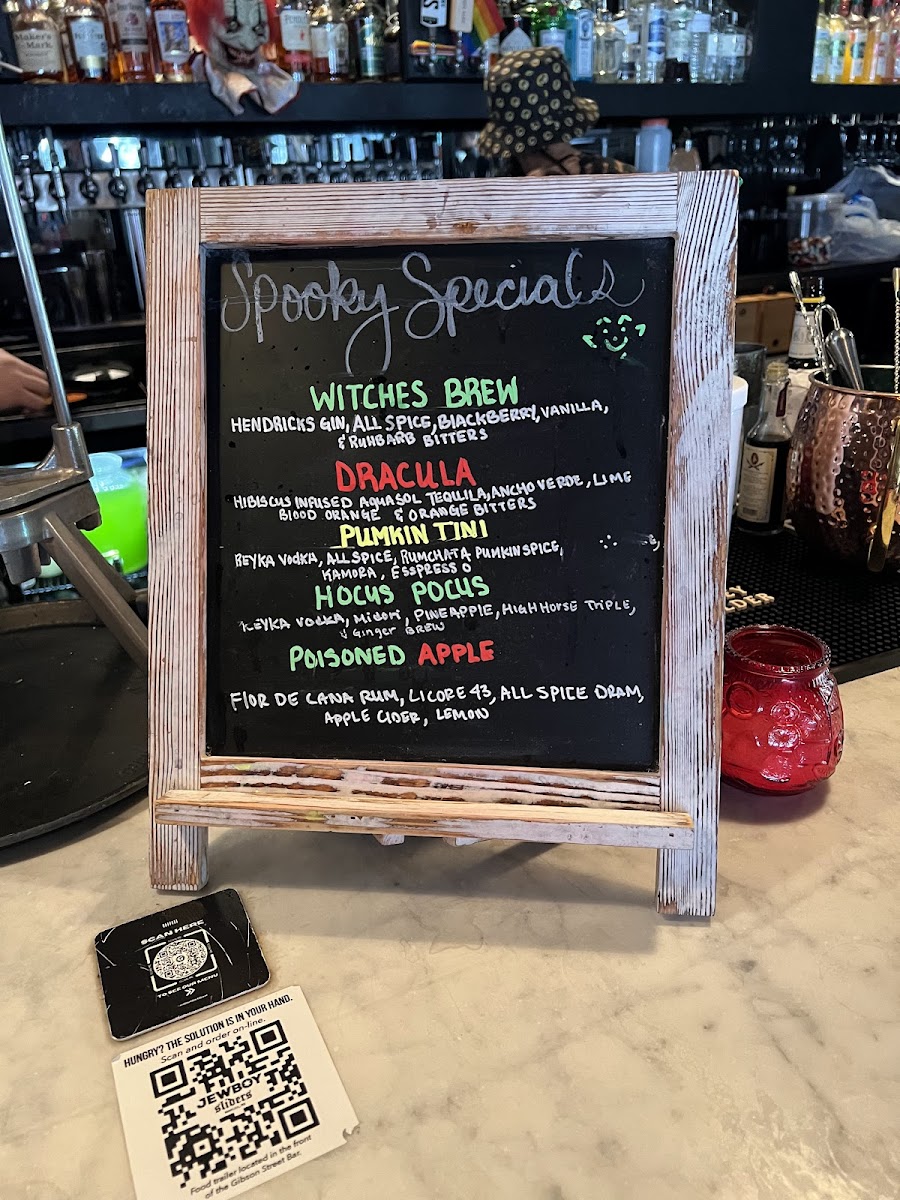 Maker's
Mark
Spooky Specials
WITCHES BREW
HENDRICKS GIN, ALL SPICE, BLACKBERRY, VANILLA,
& RUHBARB BITTERS
DRACULA
HIBISCUS INFUSED AQUASOL TEQUILA, ANCHO VERDE, LIME
BLOOD ORANGE & ORANGE BITTERS
PUMKIN TINI
REYKA VODKA, ALLSPICE, RUMCHATA PUMKIN SPICE,
KAMORA, ESSPRESSO
HOCUS POCUS
REYKA VODKA, MIDORI, PINEAPPLE, HIGH HORSE TRIPLE,
& GINGER BREW
POISONED APPLE
FlOR DE CANA RUM, LICORE 43, ALL SPICE DRAM,
APPLE CIDER, LEMON
SCAN HERE
TO SEE OUR MENU
HUNGRY? THE SOLUTION IS IN YOUR HAND.
Scan and order on-line.
JEWBOY
sliders
Food trailer located in the front
of the Gibson Street Bar.